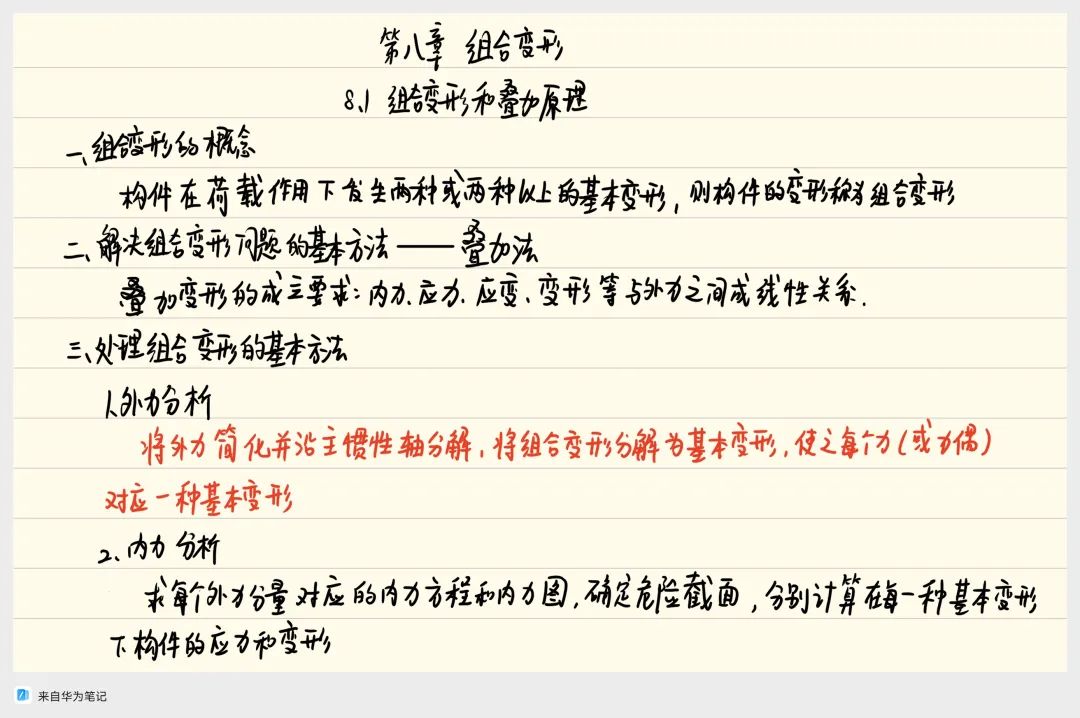 第八章 组合变形
8.1 组合变形和叠加原理
一、组合变形的概念
构件在荷载作用下发生两种或两种以上的基本变形，则构件的变形称为组合变形
二、解决组合变形问题的基本方法——叠加法
叠加变形的成立要求：内力、应力、应变、变形等与外力之间成线性关系.
三、处理组合变形的基本方法
1.外力分析
将外力简化并沿主惯性轴分解，将组合变形分解为基本变形，使之每个力(或力偶)
对应一种基本变形
2、内力分析
求每个外力分量对应的内力方程和内力图，确定危险截面，分别计算在每一种基本变形
下构件的应力和变形
来自华为笔记